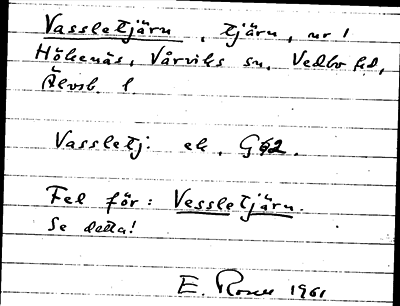 Vassletjärn, tjärn, nr 1
Hökenäs, Vårviks sn, Vedbo hd,
Älvsb. l
Vassletj. ek. G62.
Fel för: Vessletjärn.
Se detta!
E. Rosell 1961